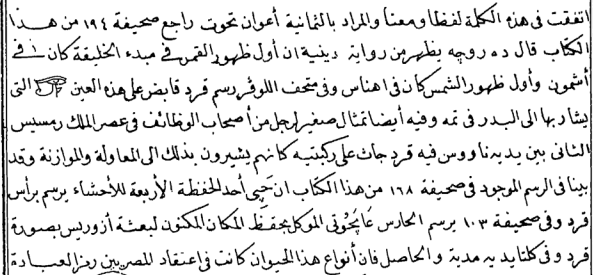 اتفقت فى هذه الكلمة لفظا ومعنا والمراد بالثمانية أعوان تحوت راجع صحيفة ١٩٤ من هذا
الكتاب قال ده روجه يظهر من رواية دينية ان أول ظهور القمر فى مبدء الخليقة كان فى
أشمون وأول ظهور الشمس كان فى اهناس وفى متحف اللوفر رسم قرد قابض على هذه العين التى
يشار بها الى البدر فى تمه وفيه أيضا تمثال صغير لرجل من أصحاب الوظائف فى عصر الملك رمسيس
الثانى بين يديه ناووس فيه قرد جاث على ركبتيه كانهم يشيرون بذلك الى المعاولة والموازنة وقد
بينا فى الرسم الموجود فى صحيفة ١٦٨ من هذا الكتاب ان حَپِى أحد الحفظة الأربعة للأحشاء يرسم برأس
قرد وفى صحيفة ١٠٣ يرسم الحارس الموكل بحفظ المكان المكنون لبعثة أزوريس بصورة
قرد وفى كلتا يديه مدية والحاصل فان أنواع هذا الحيوان كانت فى اعتقاد المصريين رمزا لعبادة